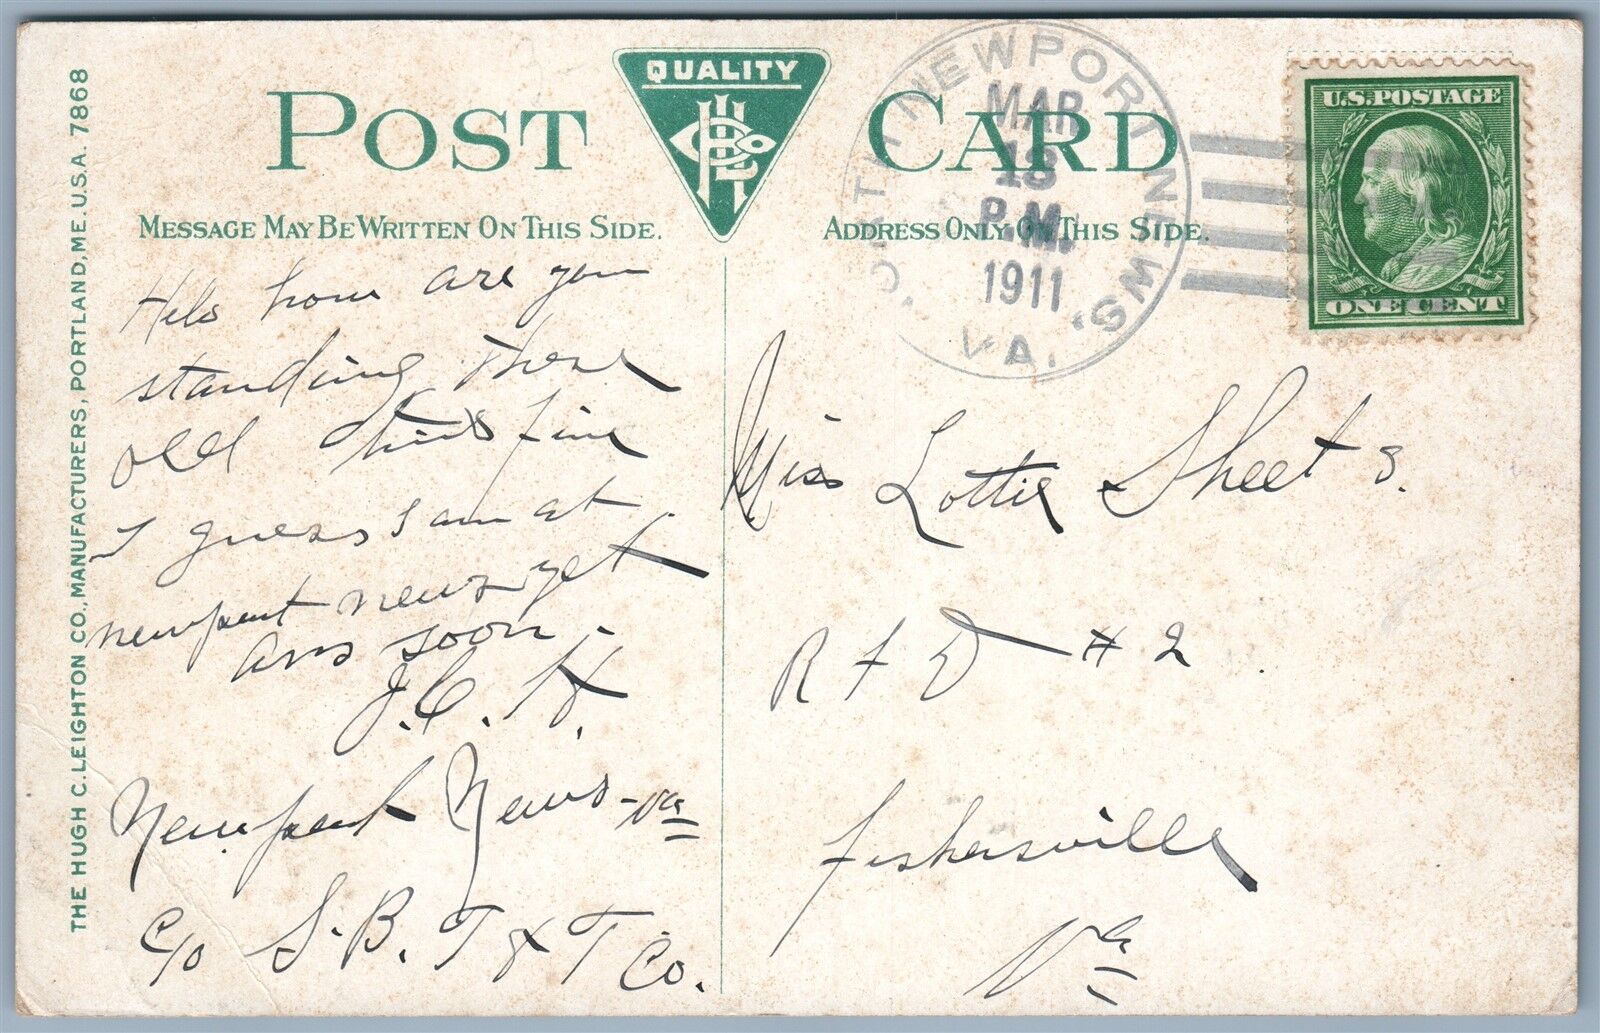 THE HUGH C. LEIGHTON CO., MANUFACTURERS, PORTLAND, ME. U.S.A. 7868
POST CARD
QUALITY
MESSAGE MAY BE WRITTEN ON THIS SIDE.
ADDRESS ONLY ON THIS SIDE.
NEWPORT NEWS,
VA.
MAR
18
P.M.
1911
U.S. POSTAGE
ONE CENT
Helo how are you
standing these
old times fine
I guess I am at
newport news yet
ans soon.
J.C.H.
Newport News - Va
c/o S.B.T & T Co.
Miss Lottie Sheets.
R F D # 2
Fishersville
Va